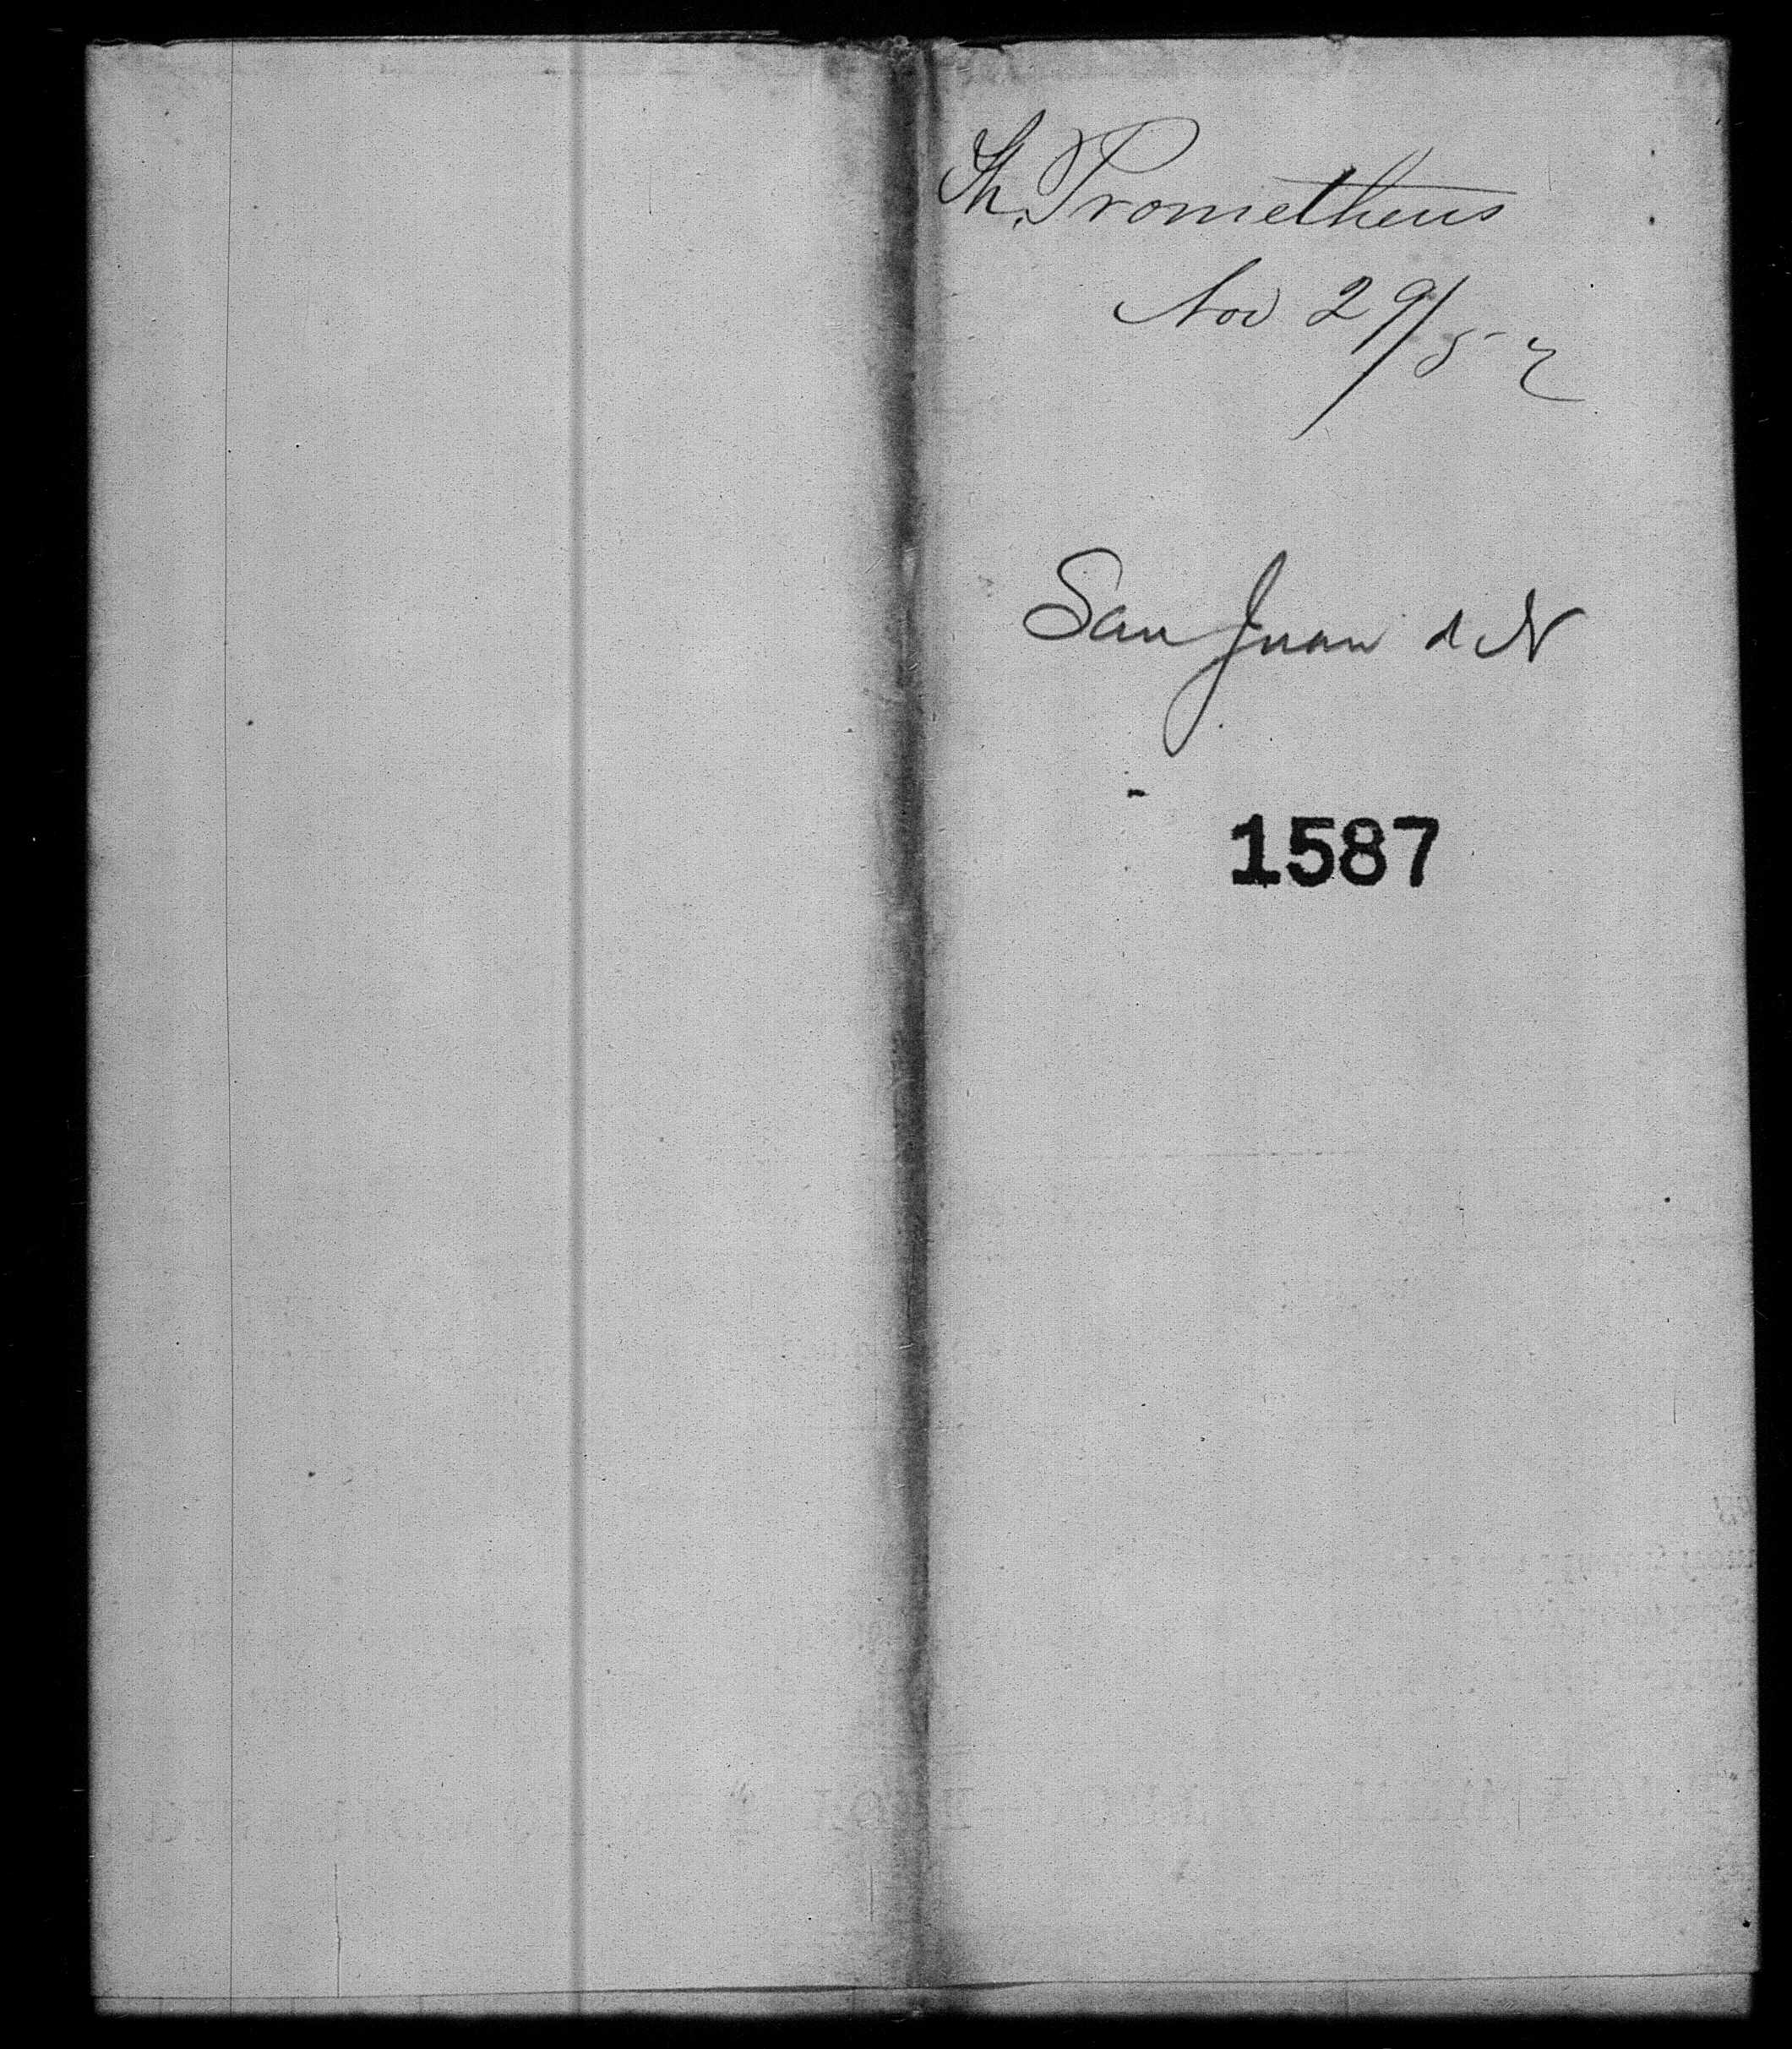 Sh. Prometheus
Nov 29/52
San Juan d N
1587